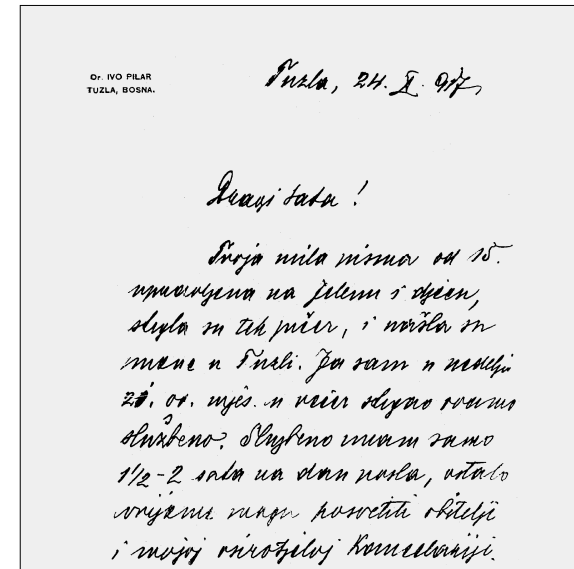 Dr. IVO PILAR
TUZLA, BOSNA.
Tuzla, 24. X. 917
Dragi tata!
Tvoja mila pisma od 15.
upravljena na Jelenu i djecu,
stigla su tek jučer, i našla su
mene u Tuzli. Ja sam u nedelju
ov. mjes. u večer stigao ovamo
službeno. Službeno imam samo
1½-2 sata na dan posla, ostalo
vrijeme mogu posvetiti obitelji
i mojoj osirotjeloj Kancelariji.